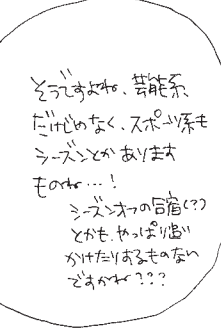 そうですよね、芸能系
だけじゃなく、スポーツ系も
シーズンとかあります
ものね…！
シーズンオフの合宿(?)
とかも、やっぱり追い
かけたりするものなん
ですかね???